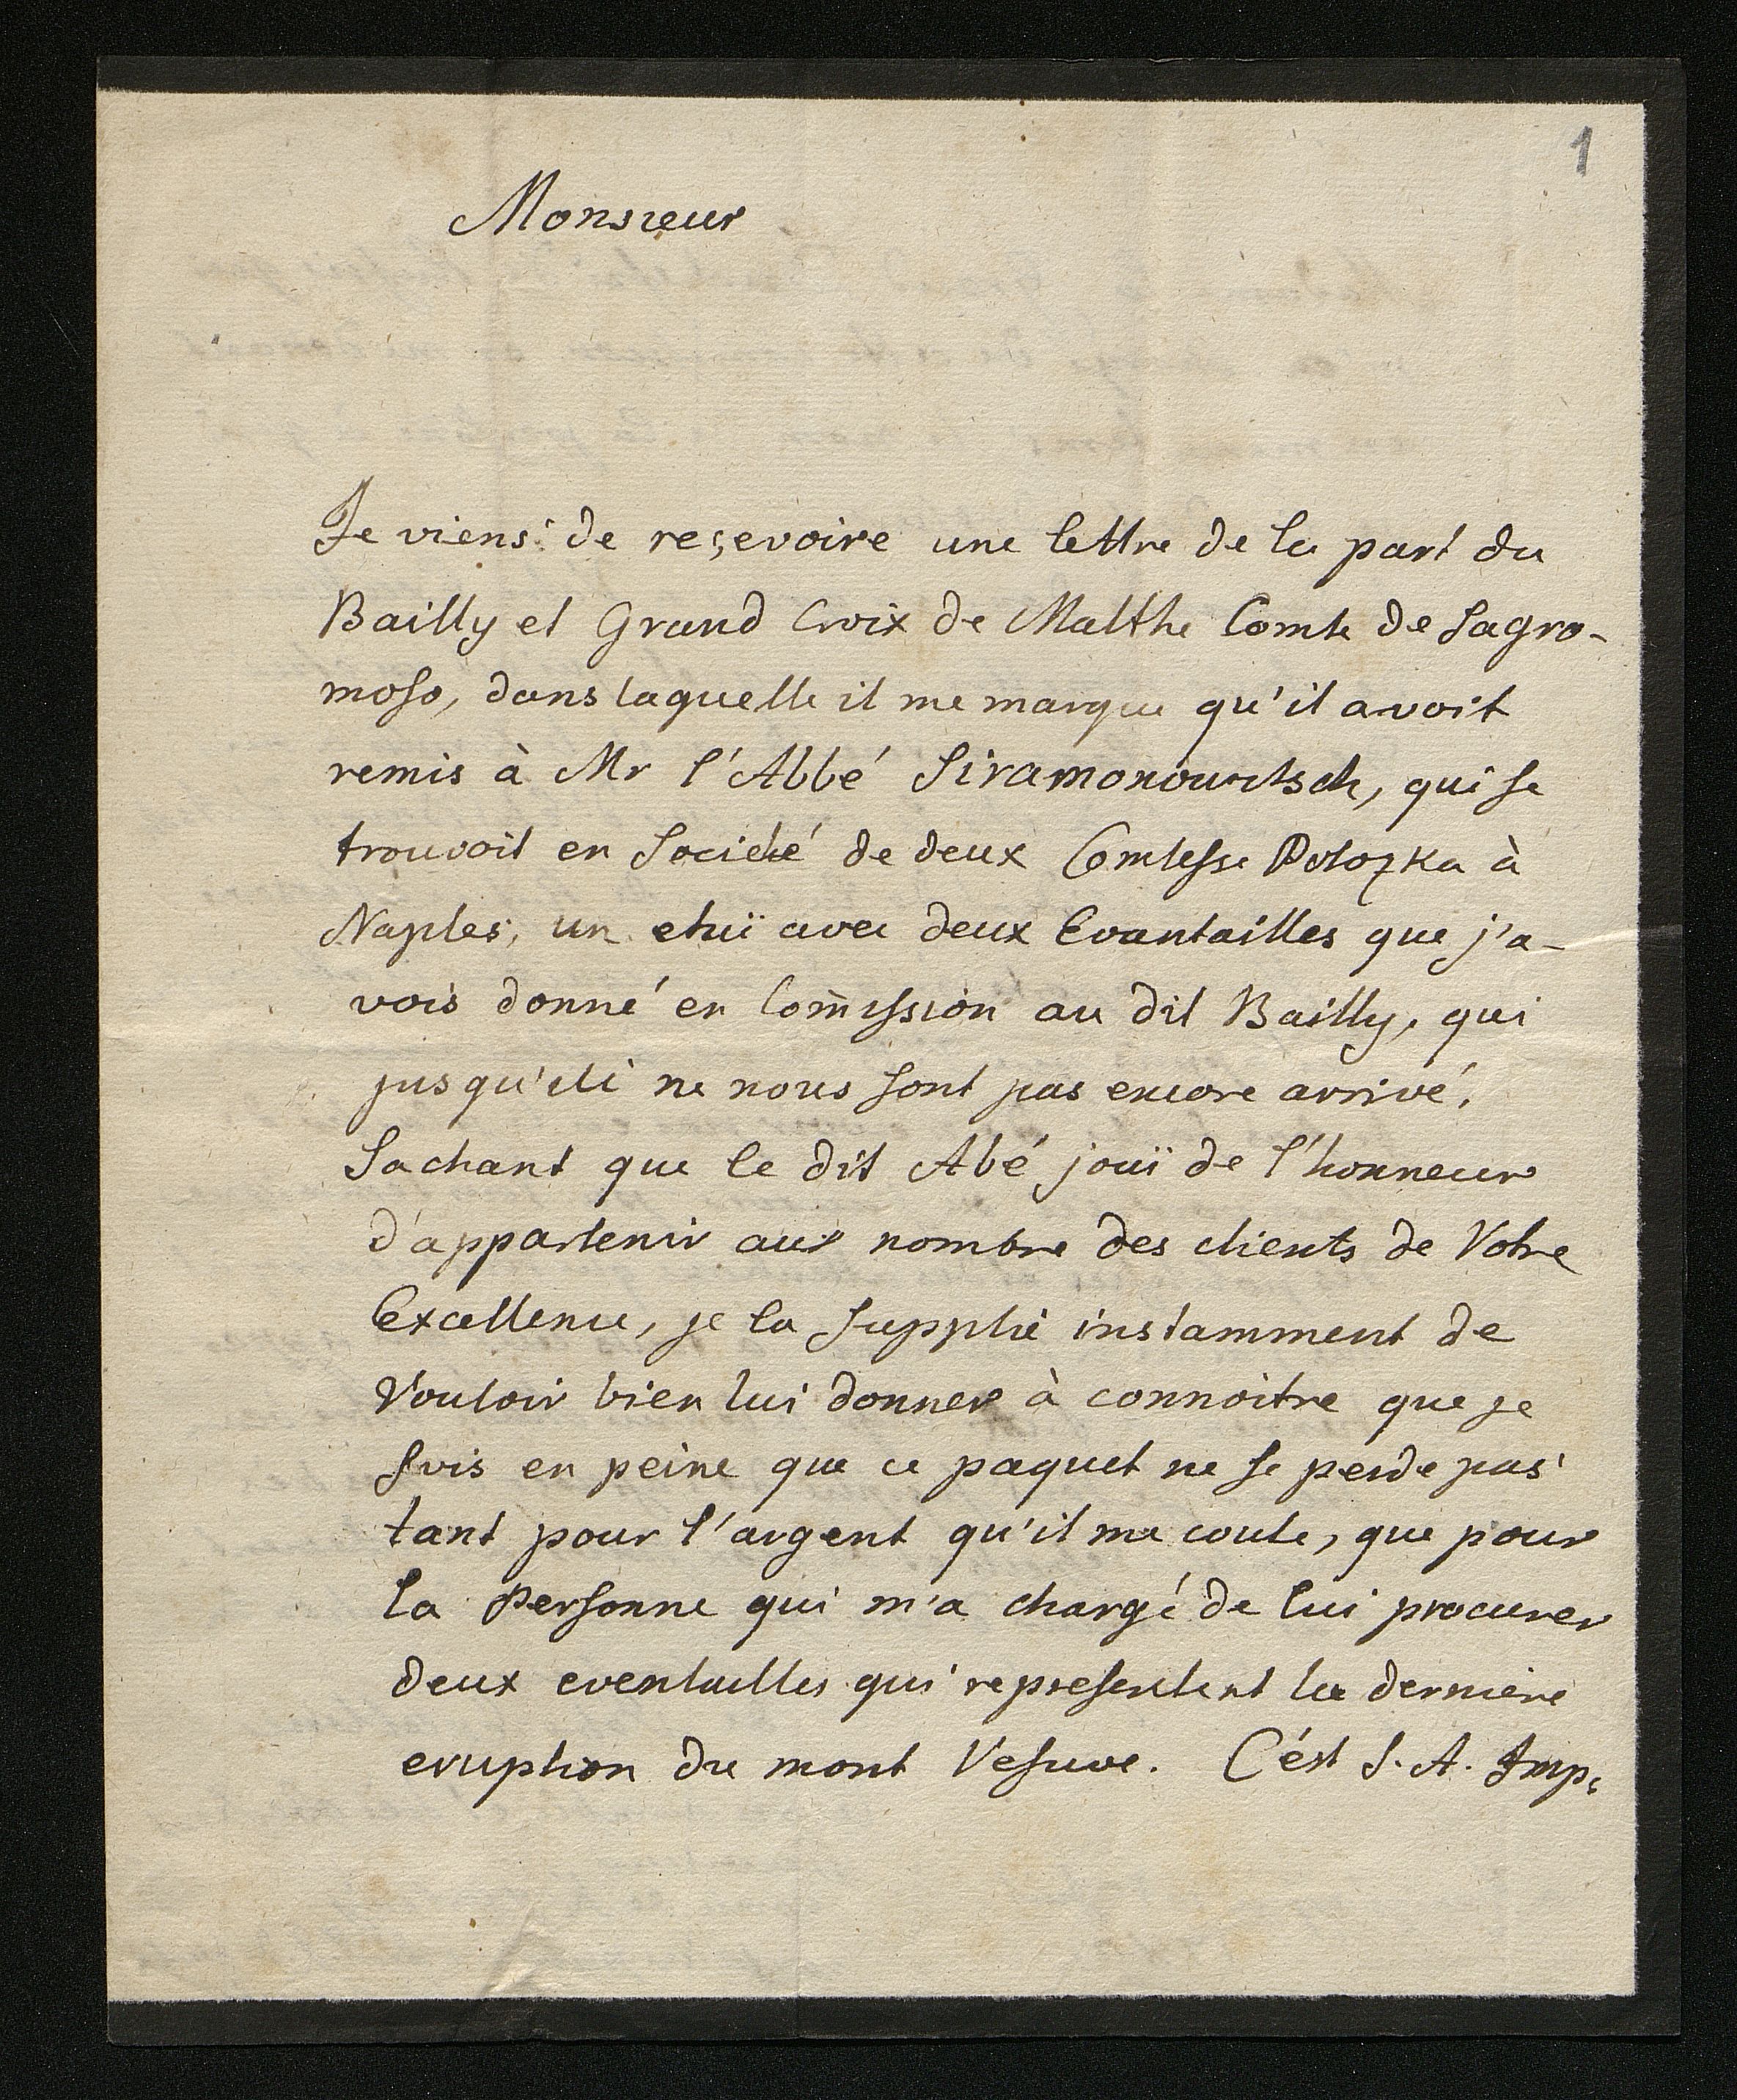 1
Monsieur
Je viens de reçevoire une lettre de la part du
Bailly et Grand Croix de Malthe Comte de Sagro-
moso, dans laquelle il me marque qu'il avoit
remis à Mr l'Abbé Siramonourtsch, qui se
trouvoit en Societé de deux Comtesse Potozka à
Naples, un etuï avec deux Evantailles que j'a-
vois donné en Com̄ission au dit Bailly, qui
jusqu'ici ne nous sont pas encore arrivé,
Sachant que le dit Abé jouï de l'honneur
d'appartenir aux nombre des clients de Votre
Excellence, je la supplie instamment de
Vouloir bien lui donner à connoitre que je
suis en peine que ce paquet ne se perde pas
tant pour l'argent qu'il me coute, que pour
la Personne qui m'a chargé de lui procurer
deux eventailles qui representent la derniere
eruption du mont Vesuve. C'ést S. A. Imp.